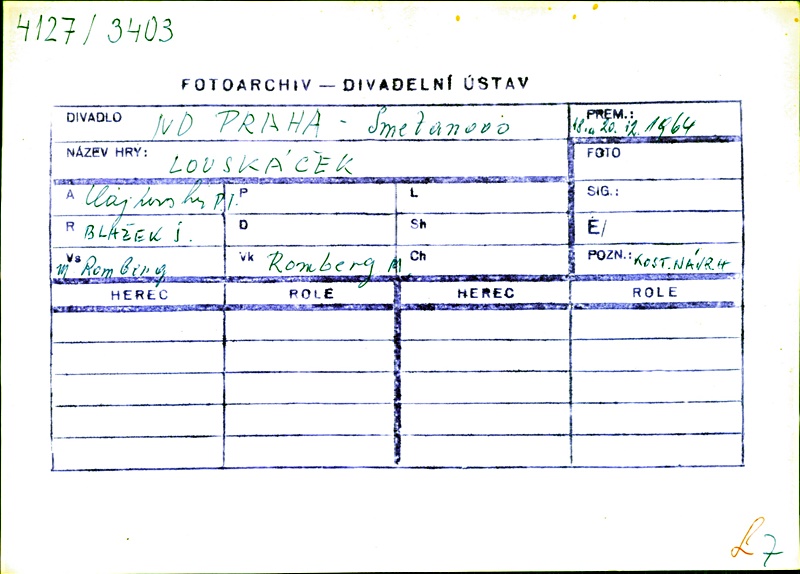 4127/3403
FOTOARCHIV — DIVADELNÍ ÚSTAV
DIVADLO ND PRAHA - Smetanovo PREM.: 18. a 20. 12. 1964
NÁZEV HRY: LOUSKÁČEK FOTO
A P. I. P L SIG.:
R BLAŽEK J. D Sh É/
Vs Vk Romberg M Ch POZN.: KOST. NÁVRH
HEREC ROLE HEREC ROLE
L 7